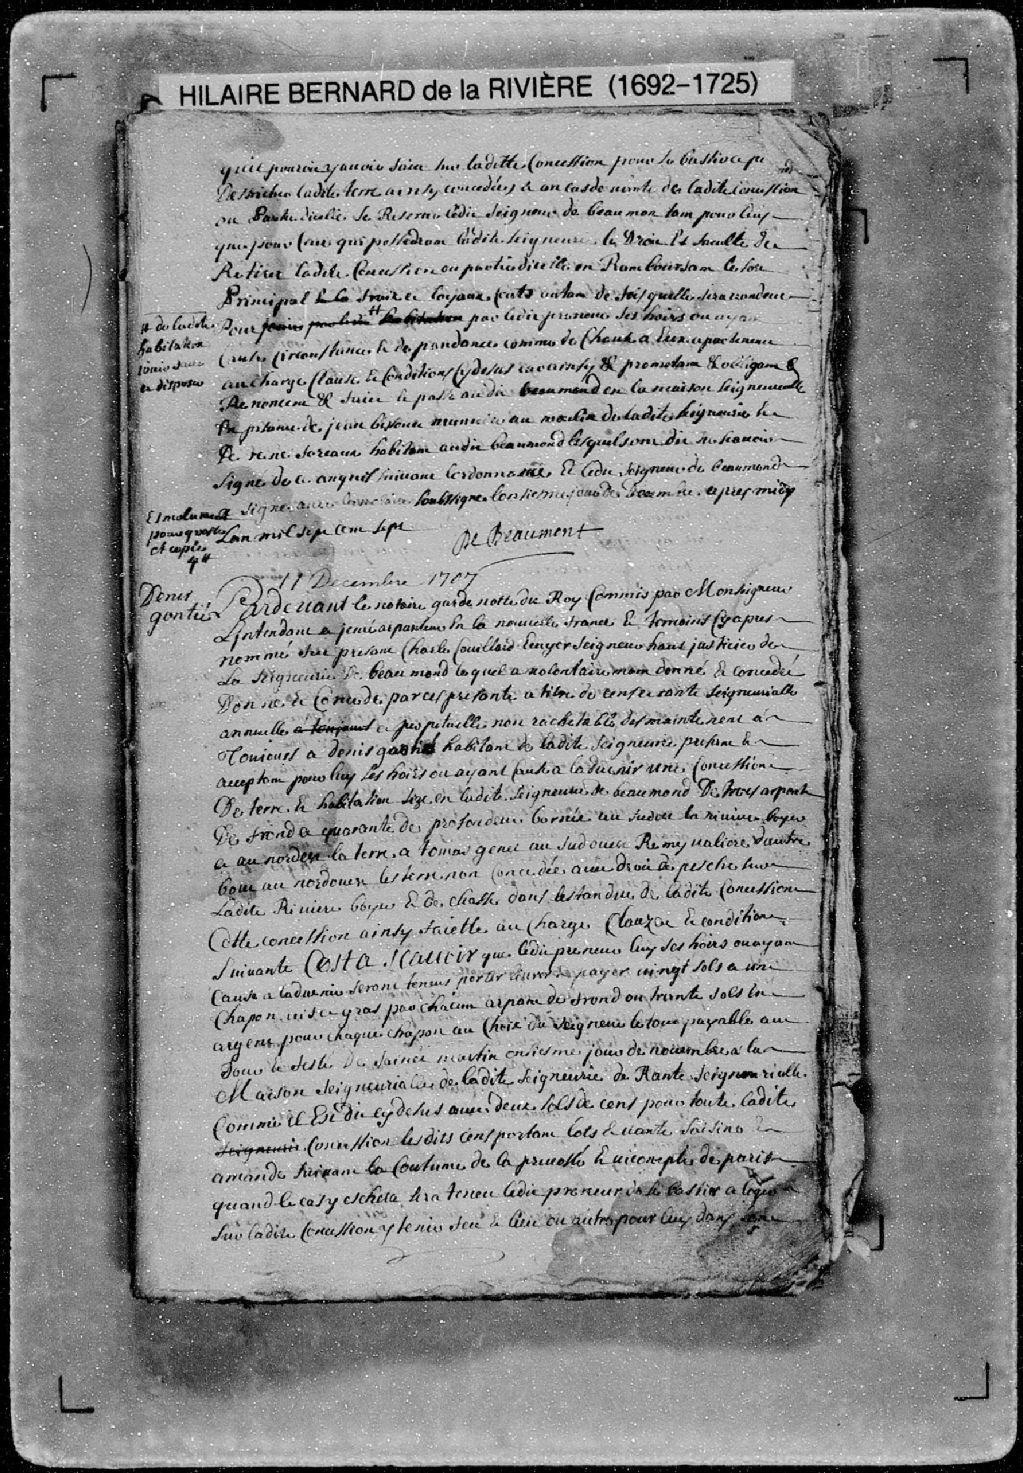 HILAIRE BERNARD de la RIVIÈRE (1692–1725)
quil pouroit y avoir faire sur laditte Concession pour le
Desfricher ladite terre ainsy concedées & en cas de vente de ladite concession
ou Partie dicelle Se Reserve ledit Seigneur de beaumon tam pour luy
que pour Ceux qui possedront ladite Seigneurie le Droit Et faculté de
Retirer ladite Concession ou partie dicelle en Rembourssam le sort
Principal & loyaux Couts autam de
Pour par ledit preneur Ses hoirs ou ayan
# de ladite
habitation
en disposer
Cause Circonstances & dependances comme de Chause a Eux apartenene
au Charge Clause & Conditions Cydesus car ainsy & promettam & obligam &
Renoncem & faict & passé audit beaumond en la maison Seigneurialle
En presence de jean munier au moulin de ladite Seigneurie &
De rene habitam audit beaumond lesquels ont dit ne scavoir
Signe de ce enquis suivant lordonnance Et ledit Seigneur de beaumond
a Signe avec soubsigne lonsieme jour de Decembre apres midy
Lan mil sept cem sept
De Beaumont
pour
et copie
4#
11 Decembre 1707
Denis
gontié
Pardevant le notaire garde notte du Roy Commis par Monseigneur
Lintendam En la nouvelle france & temoins Cy apres
nommé fut present Charle Couillard Ecuyer Seigneur haut justicier de
La Seigneurie De beaumond lequel a volontairemen donné & concedé
Donne & Concede par ces presante a titre de cens & rante Seigneurialle
annuelle a toujours & perpetuelle non rachetable des maintenent a
Toujours a denis habitam de ladite Seigneurie presem &
acceptam pour luy Ses hoirs ou ayant Cause a ladvenir une Concession
De terre & habitation size en ladite Seigneurie de beaumond De trois arpents
De frond a quarante de profondeur bornée au sudest la riviere boyer
a au nordest la terre a tomas genet au Sudouest Remy valiere dautre
bout au nordouest les terre non Concedée avec droit de pesche sur
Ladite Riviere boyer & de chasse dans lestandue de ladite Concession
Cette concession ainsy faicte au Charge Clauze & condition
Suivante Cest a Scavoir que ledit preneur luy ses hoirs ou ayan
Cause a ladvenir seront tenus porter livrer & payer vingt sols a un
Chapon vif & gras par chacun arpam de frond ou trente sols En
argent pour chaque chapon au Choix du Seigneur le tout payable au
Jour & feste De Sainct martin onsiesme jour de novembre a la
Maison Seigneurialle de ladite Seigneurie de Rante Seigneurialle
Comme il Est dit cy desus avec deux sols de cens pour toute ladite
Seigneurie Concession lesdits cens portam lots & vante Saisine &
amande Suivam la Coutume de la prevosté & viconepte de paris
quand le cas y eschera Sera tenu ledit preneur de a
Sur ladite Concession y tenir feu & lieu ou autre pour luy dans